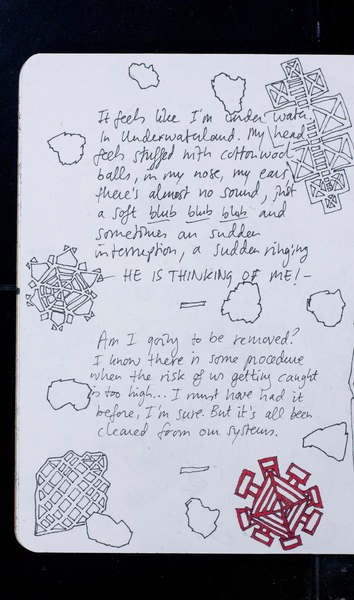 It feels like I'm under water.
In Underwaterland. My head
feels stuffed with cottonwool
balls, in my nose, my ears
there's almost no sound, just
a soft blub blub blub and
sometimes an sudden
interruption, a sudden ringing
— HE IS THINKING OF ME! —
Am I going to be removed?
I know there is some procedure
when the risk of us getting caught
is too high... I must have had it
before, I'm sure. But it's all been
cleared from our systems.